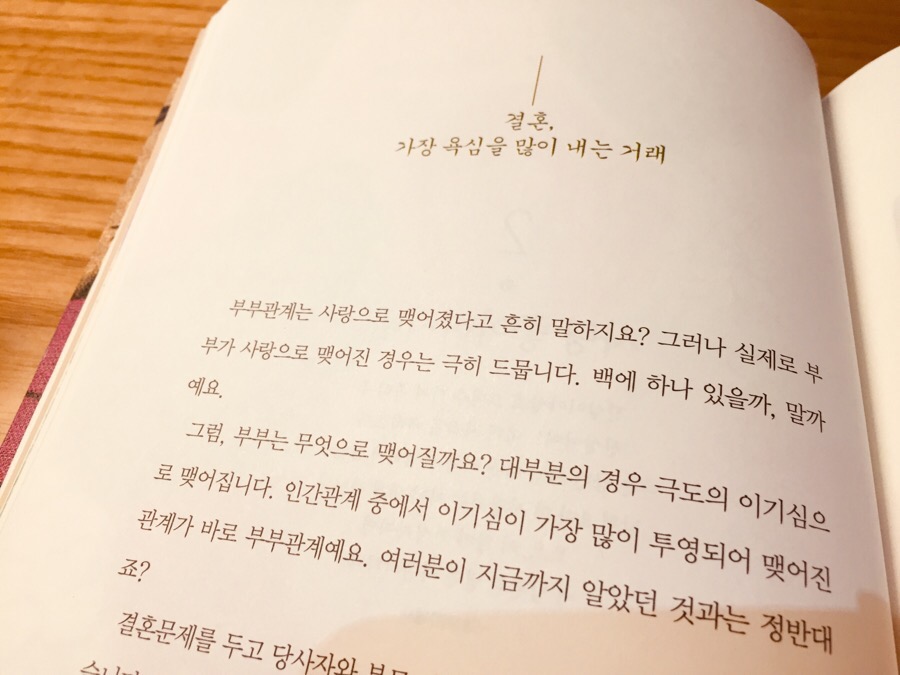 결혼,
가장 욕심을 많이 내는 거래
부부관계는 사랑으로 맺어졌다고 흔히 말하지요? 그러나 실제로 부
부가 사랑으로 맺어진 경우는 극히 드뭅니다. 백에 하나 있을까, 말까
예요.
그럼, 부부는 무엇으로 맺어질까요? 대부분의 경우 극도의 이기심으
로 맺어집니다. 인간관계 중에서 이기심이 가장 많이 투영되어 맺어진
관계가 바로 부부관계예요. 여러분이 지금까지 알았던 것과는 정반대
죠?
결혼문제를 두고 당사자와